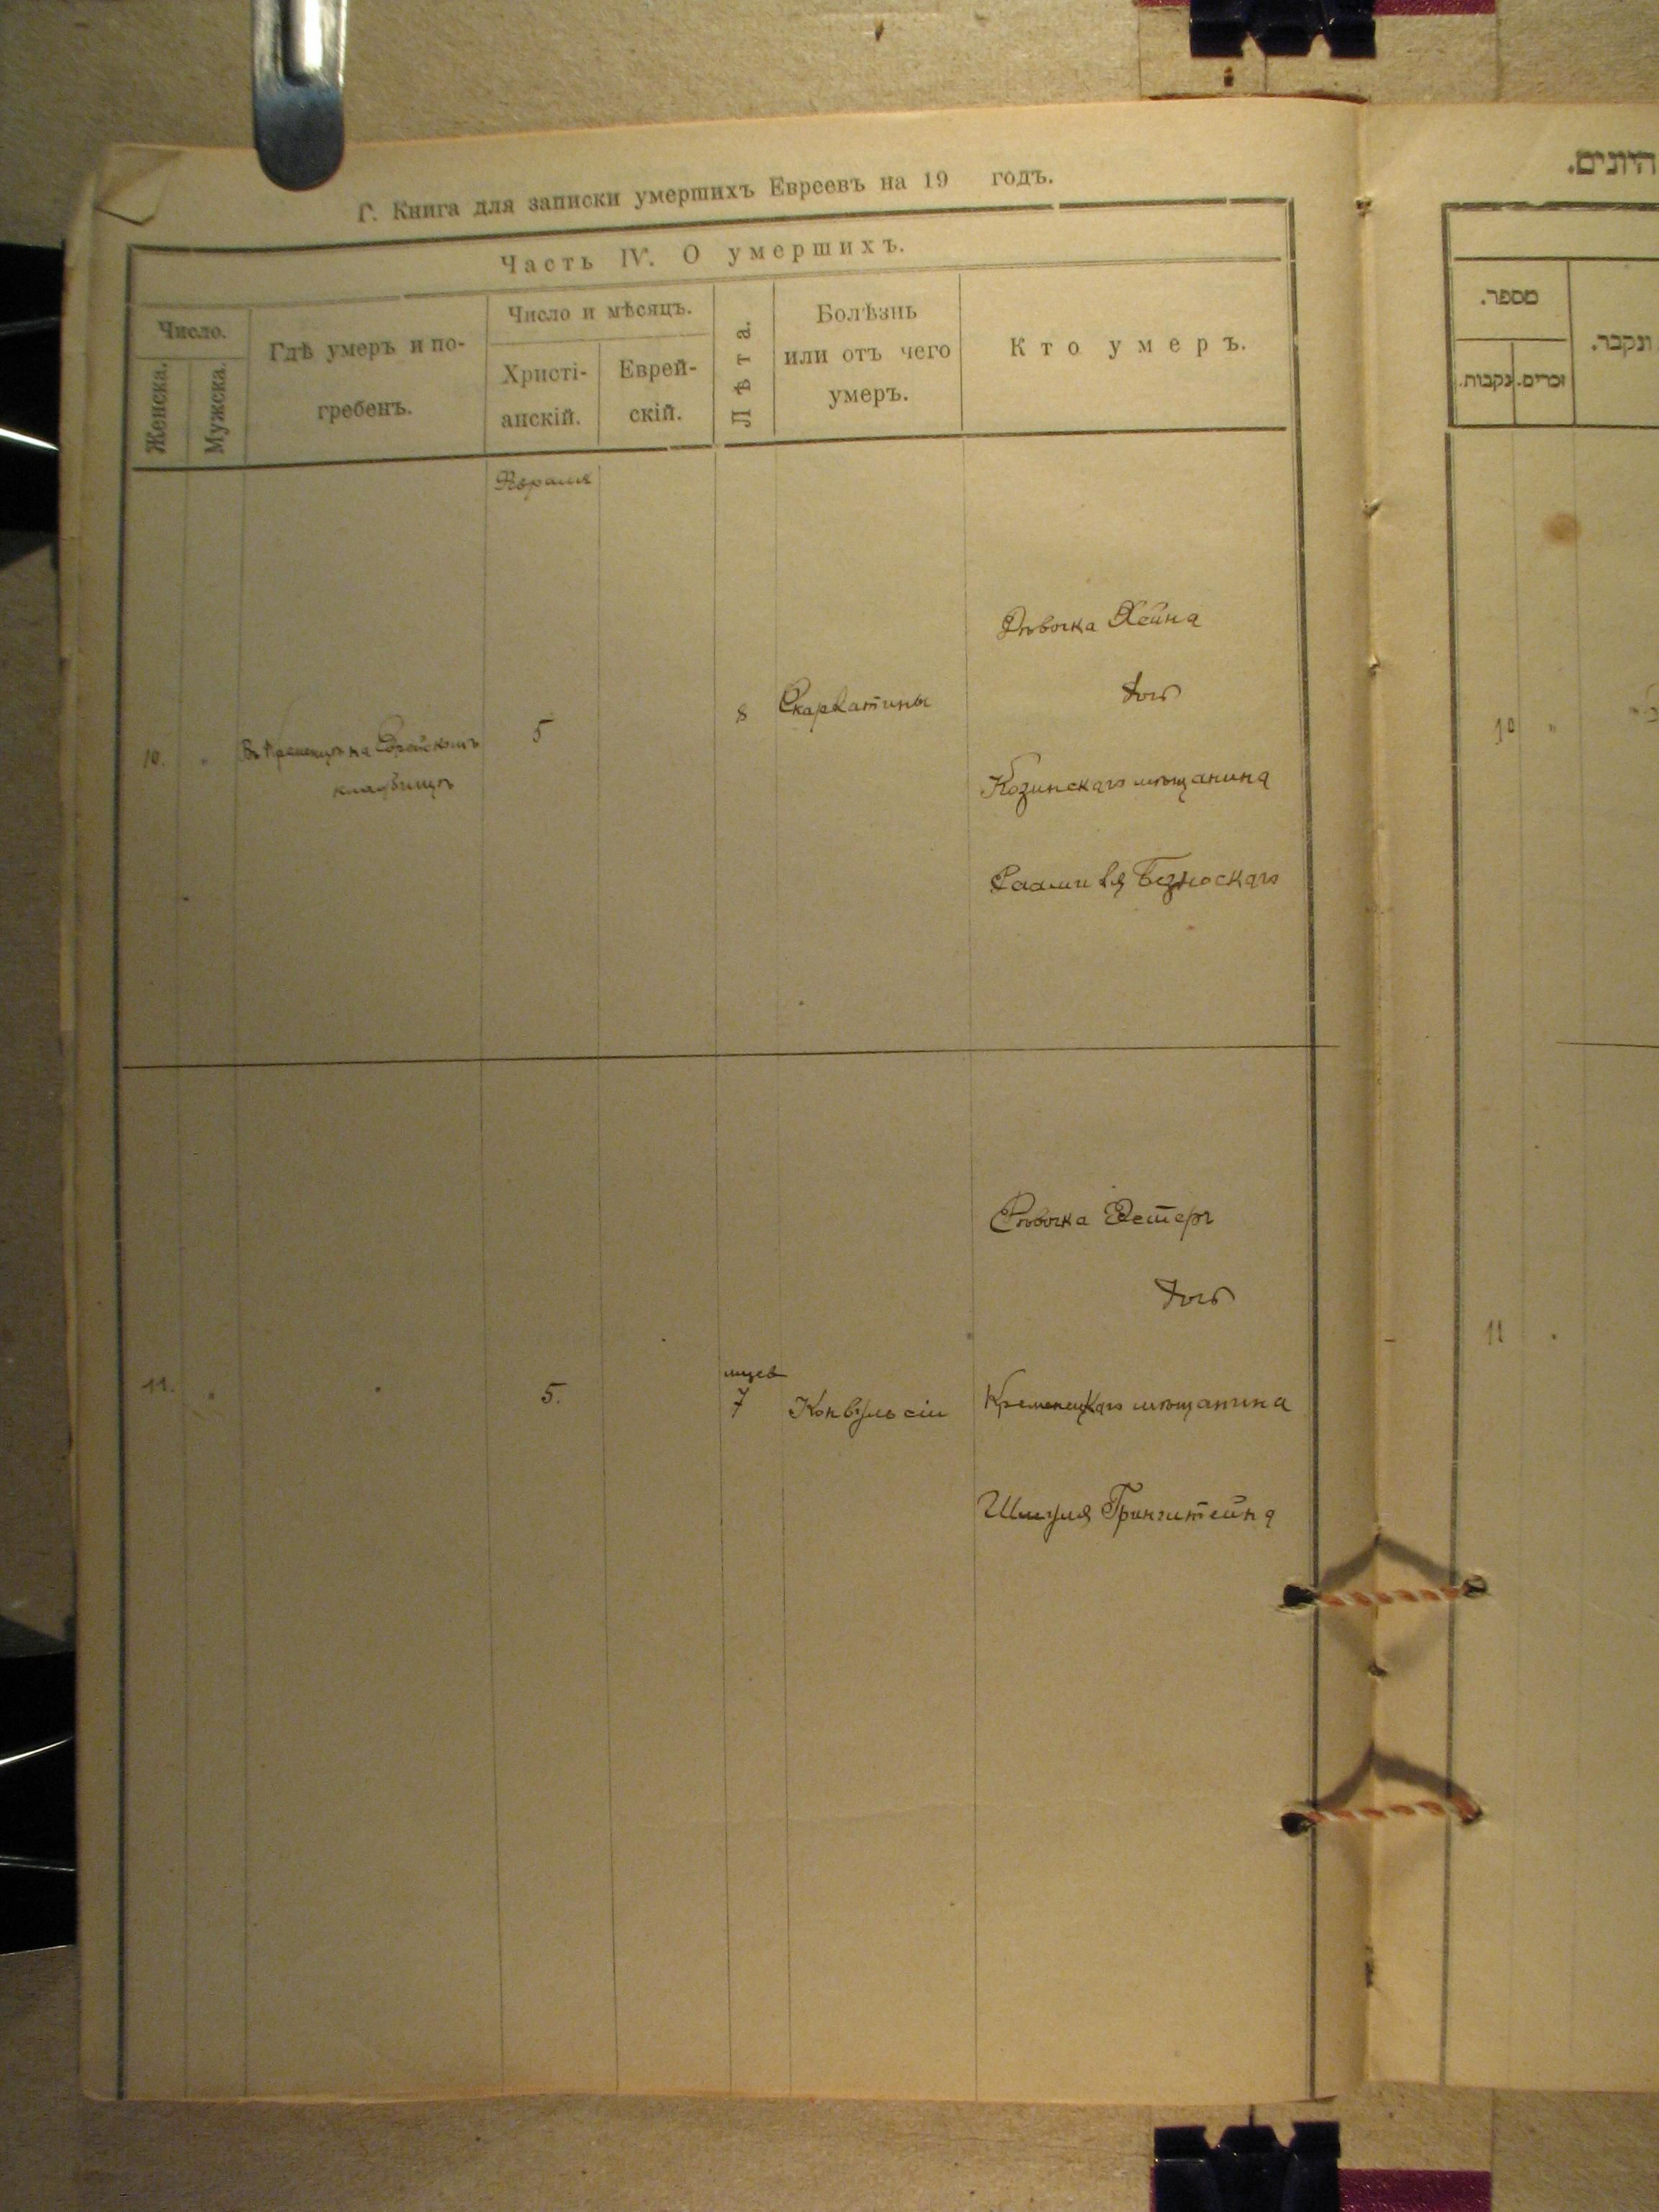 Г. Книга для записки умершихъ Евреевъ на 19 годъ.
Часть IV. О умершихъ.
Число.
Женска.
Мужска.
Гдѣ умеръ и по-
гребенъ.
Число и мѣсяцъ.
Христі-
анскій.
Еврей-
скій.
Лѣта.
Болѣзнь
или отъ чего
умеръ.
Кто умеръ.
10.
"
Въ Кременцѣ на Еврейскомъ
кладбищѣ
5
8
Скарлатины
Дѣвочка Хейна
дочь
Козинскаго мѣщанина
Безноскаго
11.
"
"
5.
мцев
7
Конвульсіи
Дѣвочка Эстеръ
дочь
Кременецкаго мѣщанина
Шмуля Гринштейна
היונים.
מספר.
נקבות.
זכרים.
ונקבר.
10
"
11